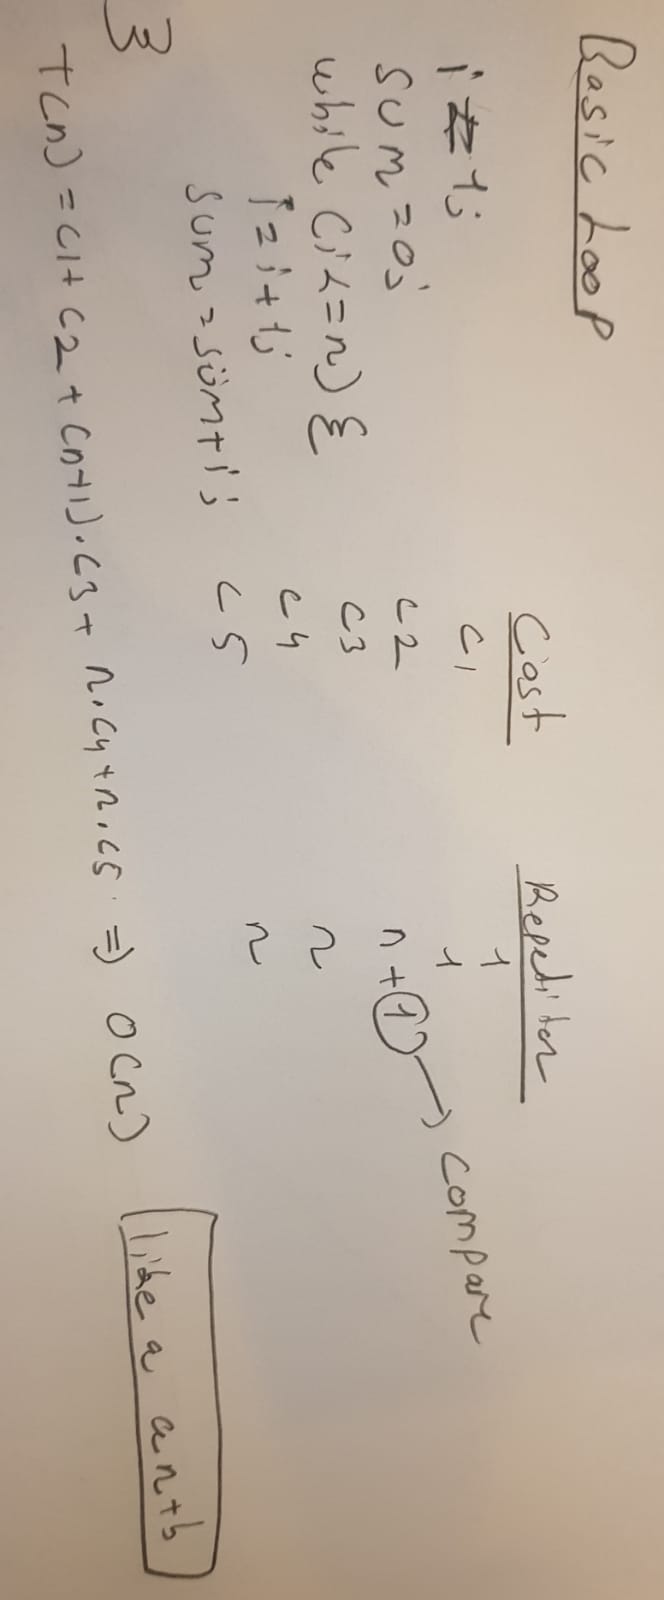 Basic Loop
Cost Repedition
i = 1; c1 1
sum = 0; c2 1
while (i <= n) { c3 n + 1 → compare
i = i + 1; c4 n
sum = sum + i; c5 n
}
T(n) = c1 + c2 + (n+1).c3 + n.c4 + n.c5 => O(n)
like a an+b